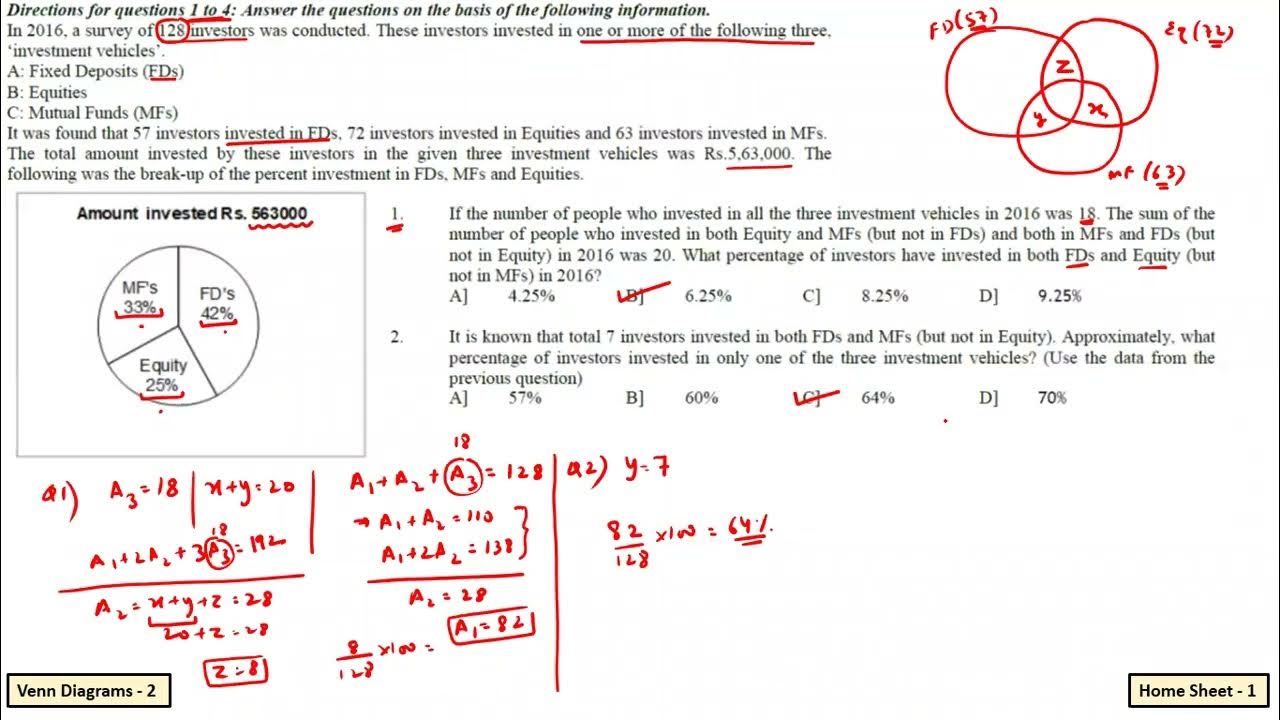 Directions for questions 1 to 4: Answer the questions on the basis of the following information.
In 2016, a survey of 128 investors was conducted. These investors invested in one or more of the following three,
‘investment vehicles’.
A: Fixed Deposits (FDs)
B: Equities
C: Mutual Funds (MFs)
It was found that 57 investors invested in FDs, 72 investors invested in Equities and 63 investors invested in MFs.
The total amount invested by these investors in the given three investment vehicles was Rs.5,63,000. The
following was the break-up of the percent investment in FDs, MFs and Equities.
FD(57)
Eq(72)
z
y
x
MF(63)
Amount invested Rs. 563000
MF's
33%
FD's
42%
Equity
25%
1. If the number of people who invested in all the three investment vehicles in 2016 was 18. The sum of the
number of people who invested in both Equity and MFs (but not in FDs) and both in MFs and FDs (but
not in Equity) in 2016 was 20. What percentage of investors have invested in both FDs and Equity (but
not in MFs) in 2016?
A] 4.25% B] 6.25% C] 8.25% D] 9.25%
2. It is known that total 7 investors invested in both FDs and MFs (but not in Equity). Approximately, what
percentage of investors invested in only one of the three investment vehicles? (Use the data from the
previous question)
A] 57% B] 60% C] 64% D] 70%
Q1) A3=18 | x+y=20
18
A1+2A2+3A3=192
A2=x+y+z=28
20+z=28
z=8
18
A1+A2+A3=128
→ A1+A2=110
A1+2A2=138
A2=28
A1=82
8/128 ×100 =
Q2) y=7
82/128 ×100 = 64%
Venn Diagrams - 2
Home Sheet - 1